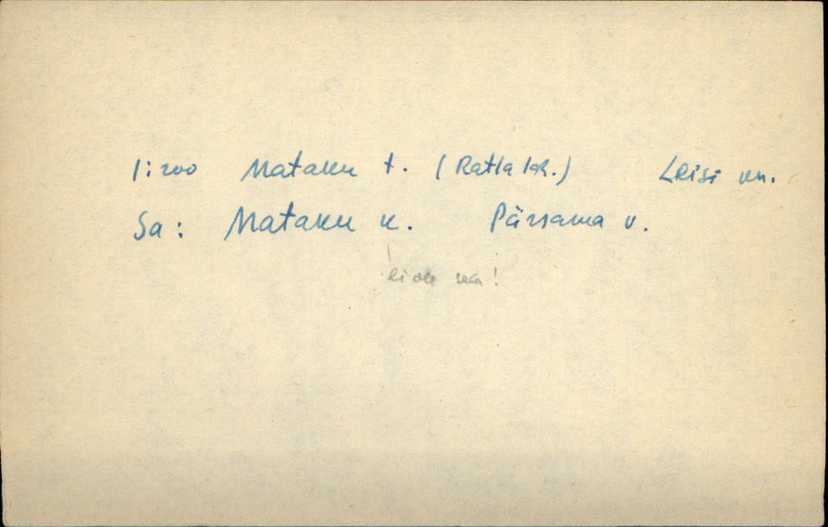 1:200 Mataku t. (Ratla lah.) Leisi vn.
Sa: Mataku k. Pärsama v.
ei ole see!